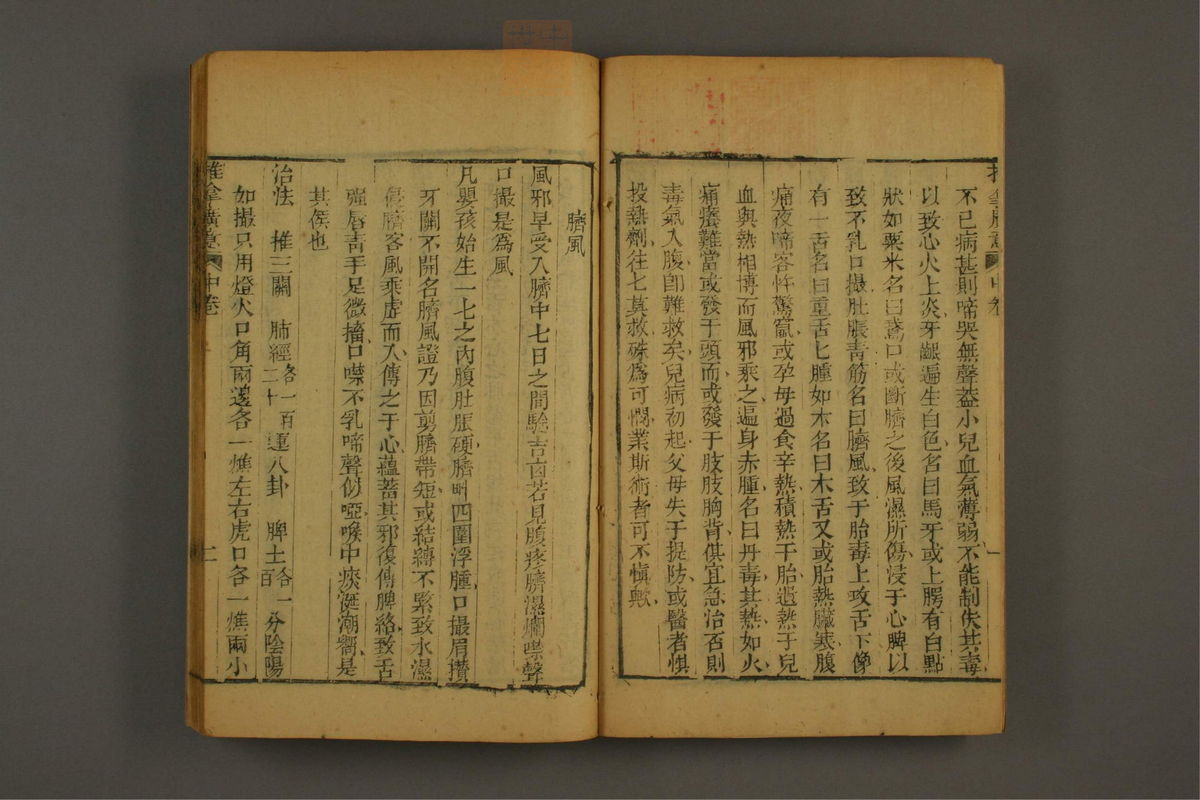 不已病甚則啼哭無聲葢小兒血氣薄弱不能制伏其毒
以致心火上炎牙齦遍生白色名曰馬牙或上腭有白點
狀如粟米名曰鵞口或斷臍之後風濕所傷浸于心脾以
致不乳口撮肚脹青筋名曰臍風致于胎毒上攻舌下像
有一舌名曰重舌七腫如木名曰木舌又或胎熱臟寒腹
痛夜啼客忤驚竄或孕母過食辛熱積熱干胎遺熱于兒
血與熱相博而風邪乘之遍身赤腫名曰丹毒其熱如火
痛癢難當或發于頭面或發于肢肢胸背俱宜急治否則
毒氣入腹卽難救矣兒病初起父母失于提防或醫者惧
投熱劑往七莫救殊爲可憫業斯術者可不慎歟
臍風
風邪早受入臍中七日之間驗吉凶若見腹疼臍濕爛噤聲
口撮是爲風
凡嬰孩始生一七之內腹肚脹硬臍畔四圍浮腫口撮眉攢
牙關不開名臍風證乃因剪臍帶短或結縛不緊致水濕
侵臍客風乘虚而入傳之于心蘊蓄其邪復傳脾絡致舌
强唇青手足微搐口噤不乳啼聲似啞喉中痰涎潮響是
其侯也
治法 推三關 肺經各一百二十 運八卦 脾土各一百 分陰陽
如撮只用燈火口角兩邊各一燋左右虎口各一燋兩小
推拿廣意 中卷 二